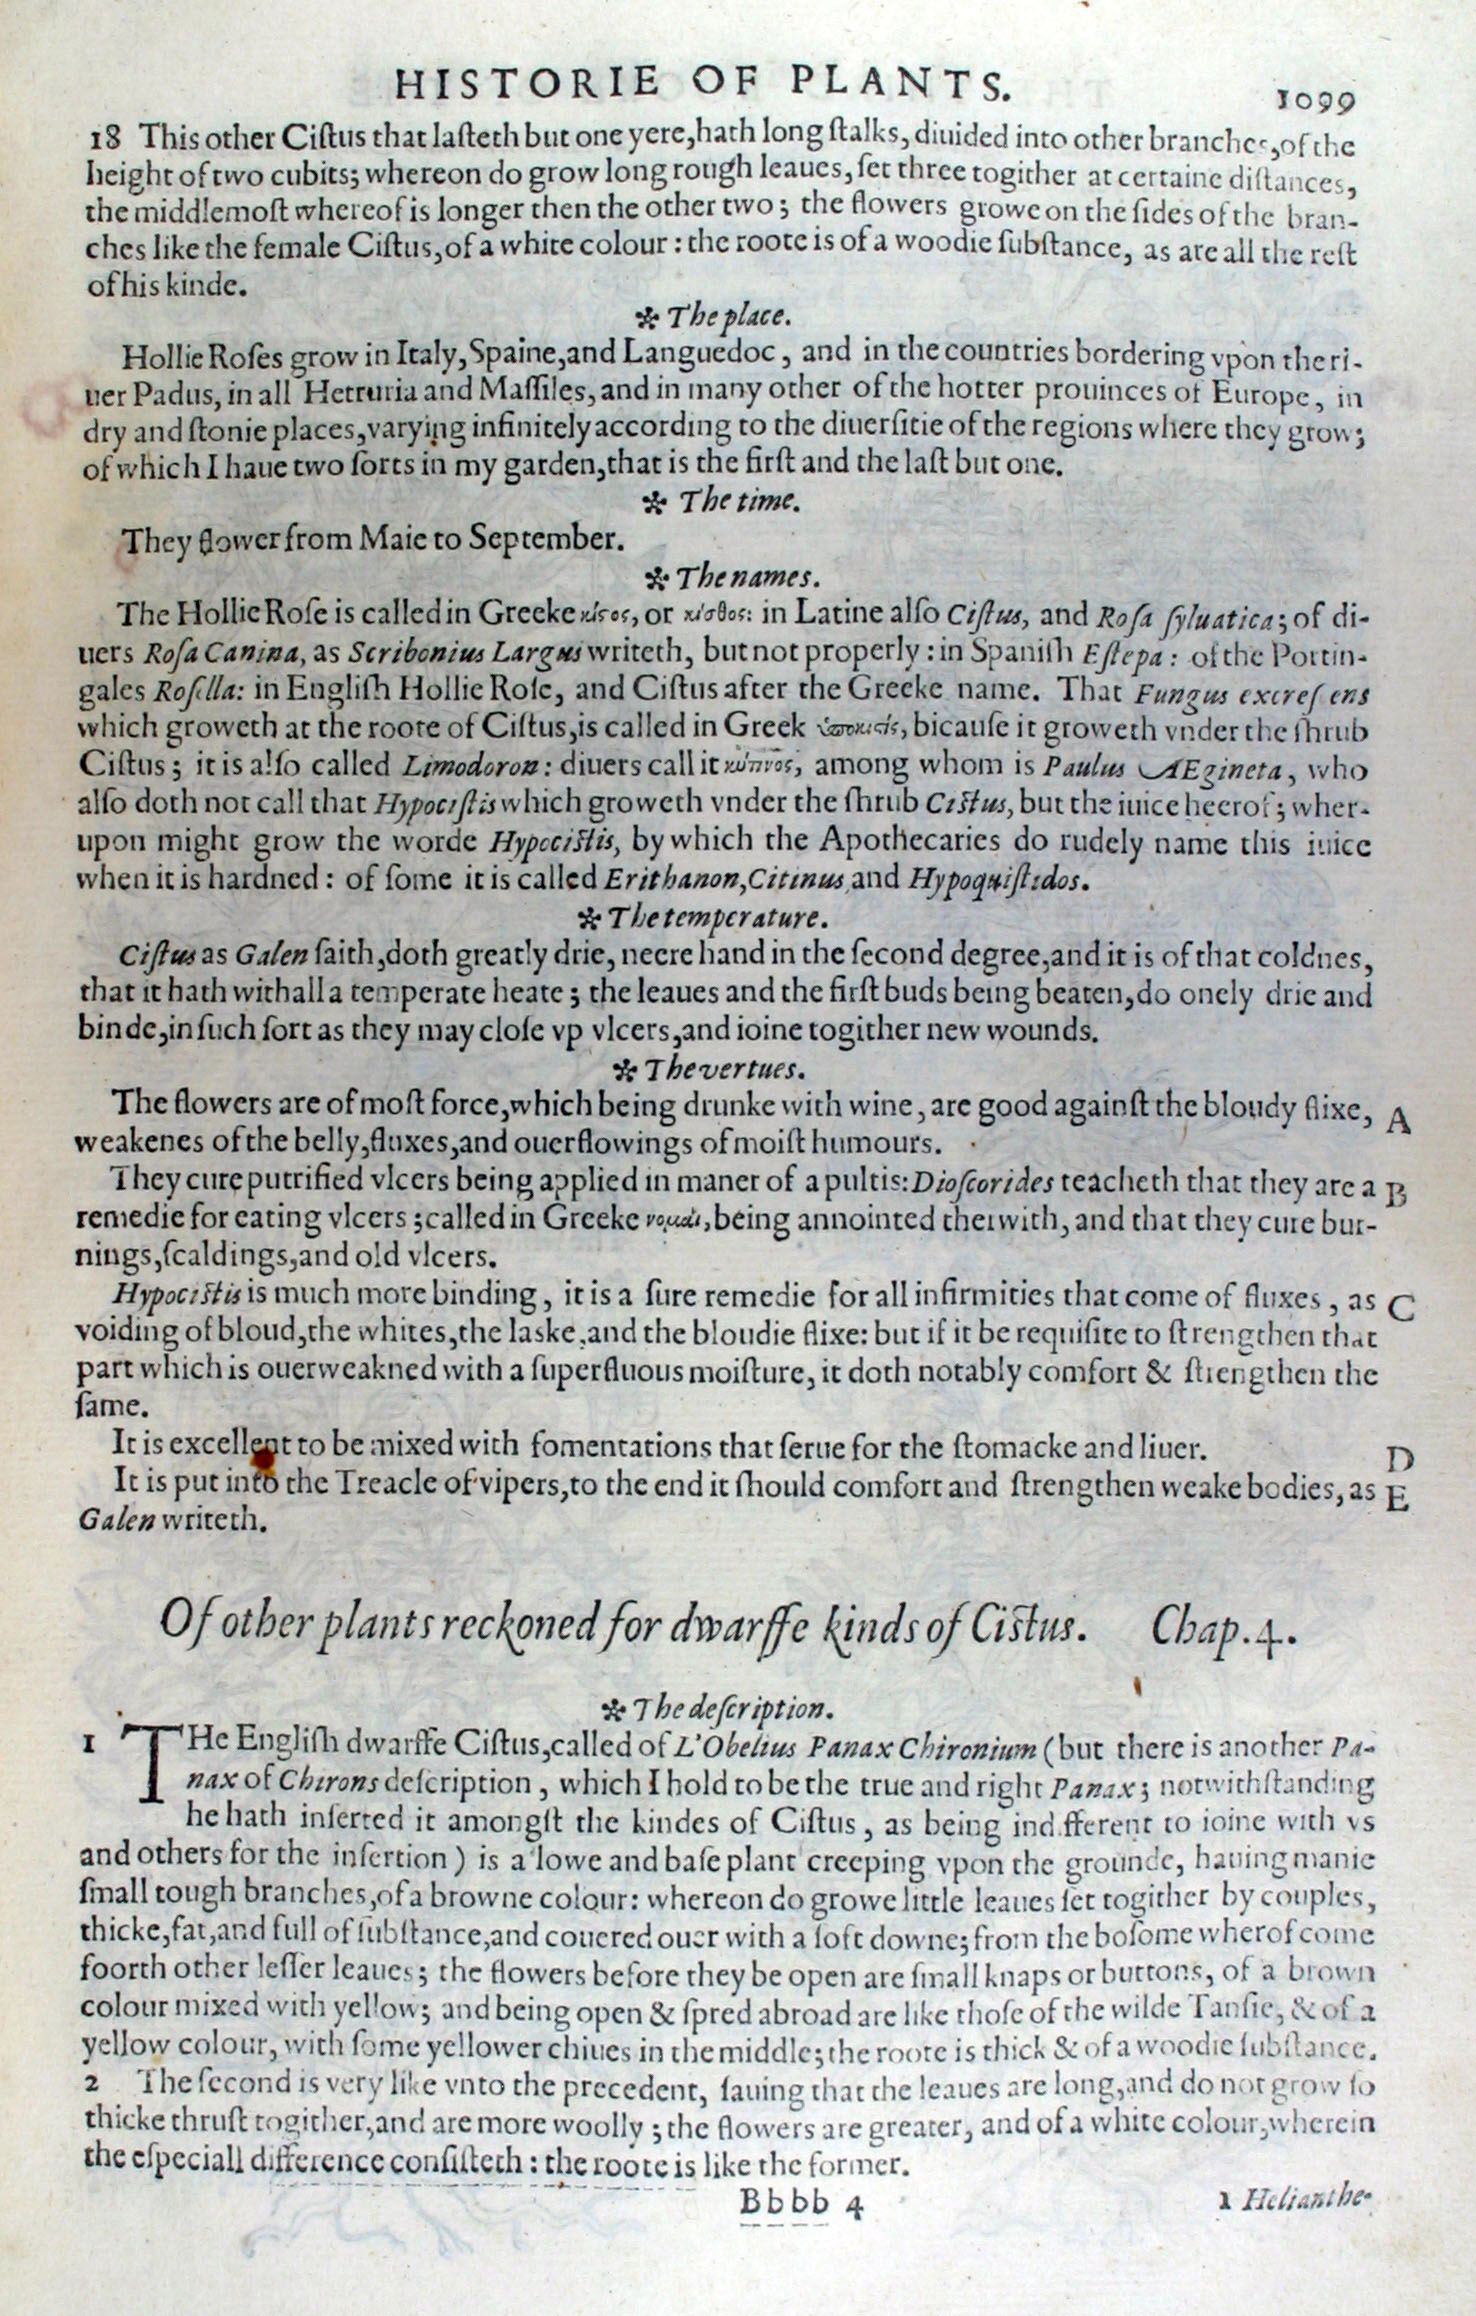 HISTORIE OF PLANTS. 1099
18 This other Ciſtus that laſteth but one yere, hath long ſtalks, diuided into other branches, of the
height of two cubits; whereon do grow long rough leaues, ſet three togither at certaine diſtances,
the middlemoſt whereof is longer then the other two; the flowers growe on the ſides of the bran-
ches like the female Ciſtus, of a white colour: the roote is of a woodie ſubſtance, as are all the reſt
of his kinde.
✻ The place.
Hollie Roſes grow in Italy, Spaine, and Languedoc, and in the countries bordering vpon the ri-
uer Padus, in all Hetruria and Maſſiles, and in many other of the hotter prouinces of Europe, in
dry and ſtonie places, varying infinitely according to the diuerſitie of the regions where they grow;
of which I haue two ſorts in my garden, that is the firſt and the laſt but one.
✻ The time.
They flower from Maie to September.
✻ The names.
The Hollie Roſe is called in Greeke κίστος, or κίσθος: in Latine alſo Ciſtus, and Roſa ſyluatica; of di-
uers Roſa Canina, as Scribonius Largus writeth, but not properly: in Spaniſh Eſtepa: of the Portin-
gales Roſella: in Engliſh Hollie Roſe, and Ciſtus after the Greeke name. That Fungus excreſ ens
which groweth at the roote of Ciſtus, is called in Greek ὑποκιστίς, bicauſe it groweth vnder the ſhrub
Ciſtus; it is alſo called Limodoron: diuers call it κύτινος, among whom is Paulus AEgineta, who
alſo doth not call that Hypociſtis which groweth vnder the ſhrub Ciſtus, but the iuice heerof; wher-
upon might grow the worde Hypociſtis, by which the Apothecaries do rudely name this iuice
when it is hardned: of ſome it is called Erithanon, Citinus, and Hypoquiſtidos.
✻ The temperature.
Ciſtus as Galen ſaith, doth greatly drie, neere hand in the ſecond degree, and it is of that coldnes,
that it hath withall a temperate heate; the leaues and the firſt buds being beaten, do onely drie and
binde, in ſuch ſort as they may cloſe vp vlcers, and ioine togither new wounds.
✻ The vertues.
The flowers are of moſt force, which being drunke with wine, are good againſt the bloudy flixe, A
weakenes of the belly, fluxes, and ouerflowings of moiſt humours.
They cure putrified vlcers being applied in maner of a pultis: Dioſcorides teacheth that they are a B
remedie for eating vlcers; called in Greeke νομαὶ, being annointed therwith, and that they cure bur-
nings, ſcaldings, and old vlcers.
Hypociſtis is much more binding, it is a ſure remedie for all infirmities that come of fluxes, as C
voiding of bloud, the whites, the laske, and the bloudie flixe: but if it be requiſite to ſtrengthen that
part which is ouerweakned with a ſuperfluous moiſture, it doth notably comfort & ſtrengthen the
ſame.
It is excellent to be mixed with fomentations that ſerue for the ſtomacke and liuer. D
It is put into the Treacle of vipers, to the end it ſhould comfort and ſtrengthen weake bodies, as E
Galen writeth.
Of other plants reckoned for dwarffe kinds of Ciſtus. Chap. 4.
✻ The deſcription.
1 THe Engliſh dwarffe Ciſtus, called of L'Obelius Panax Chironium (but there is another Pa-
nax of Chirons deſcription, which I hold to be the true and right Panax; notwithſtanding
he hath inſerted it amongſt the kindes of Ciſtus, as being indifferent to ioine with vs
and others for the inſertion) is a lowe and baſe plant creeping vpon the grounde, hauing manie
ſmall tough branches, of a browne colour: whereon do growe little leaues ſet togither by couples,
thicke, fat, and full of ſubſtance, and couered ouer with a ſoft downe; from the boſome wherof come
foorth other leſſer leaues; the flowers before they be open are ſmall knaps or buttons, of a brown
colour mixed with yellow; and being open & ſpred abroad are like thoſe of the wilde Tanſie, & of a
yellow colour, with ſome yellower chiues in the middle; the roote is thick & of a woodie ſubſtance.
2 The ſecond is very like vnto the precedent, ſauing that the leaues are long, and do not grow ſo
thicke thruſt togither, and are more woolly; the flowers are greater, and of a white colour, wherein
the eſpeciall difference conſiſteth: the roote is like the former.
Bbbb 4 1 Helianthe-